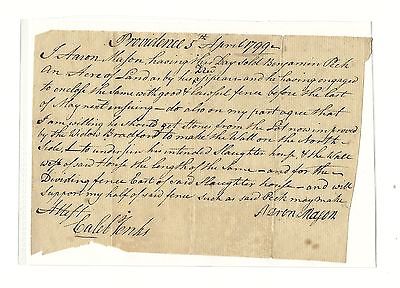 Providence 5th April 1799
I Aaron Mason having this Day Sold Benjamin Peck
An Acre of Land as by his Deed appear and he having engaged
to enclose the Same with good & lawful fence before the last
of May next ensuing - do also on my part agree that
I am willing he should get Stones from the Lot now improved
by the Widow Bradford to make the Wall on the North
Side & to underpin his intended Slaughter house & the Wall
West of said House the length of the Same - and for the
Deviding fence East of said Slaughter house - and will
Support my half of said fence Such as said Peck may make
Attest
Aaron Mason
Caleb Jenks